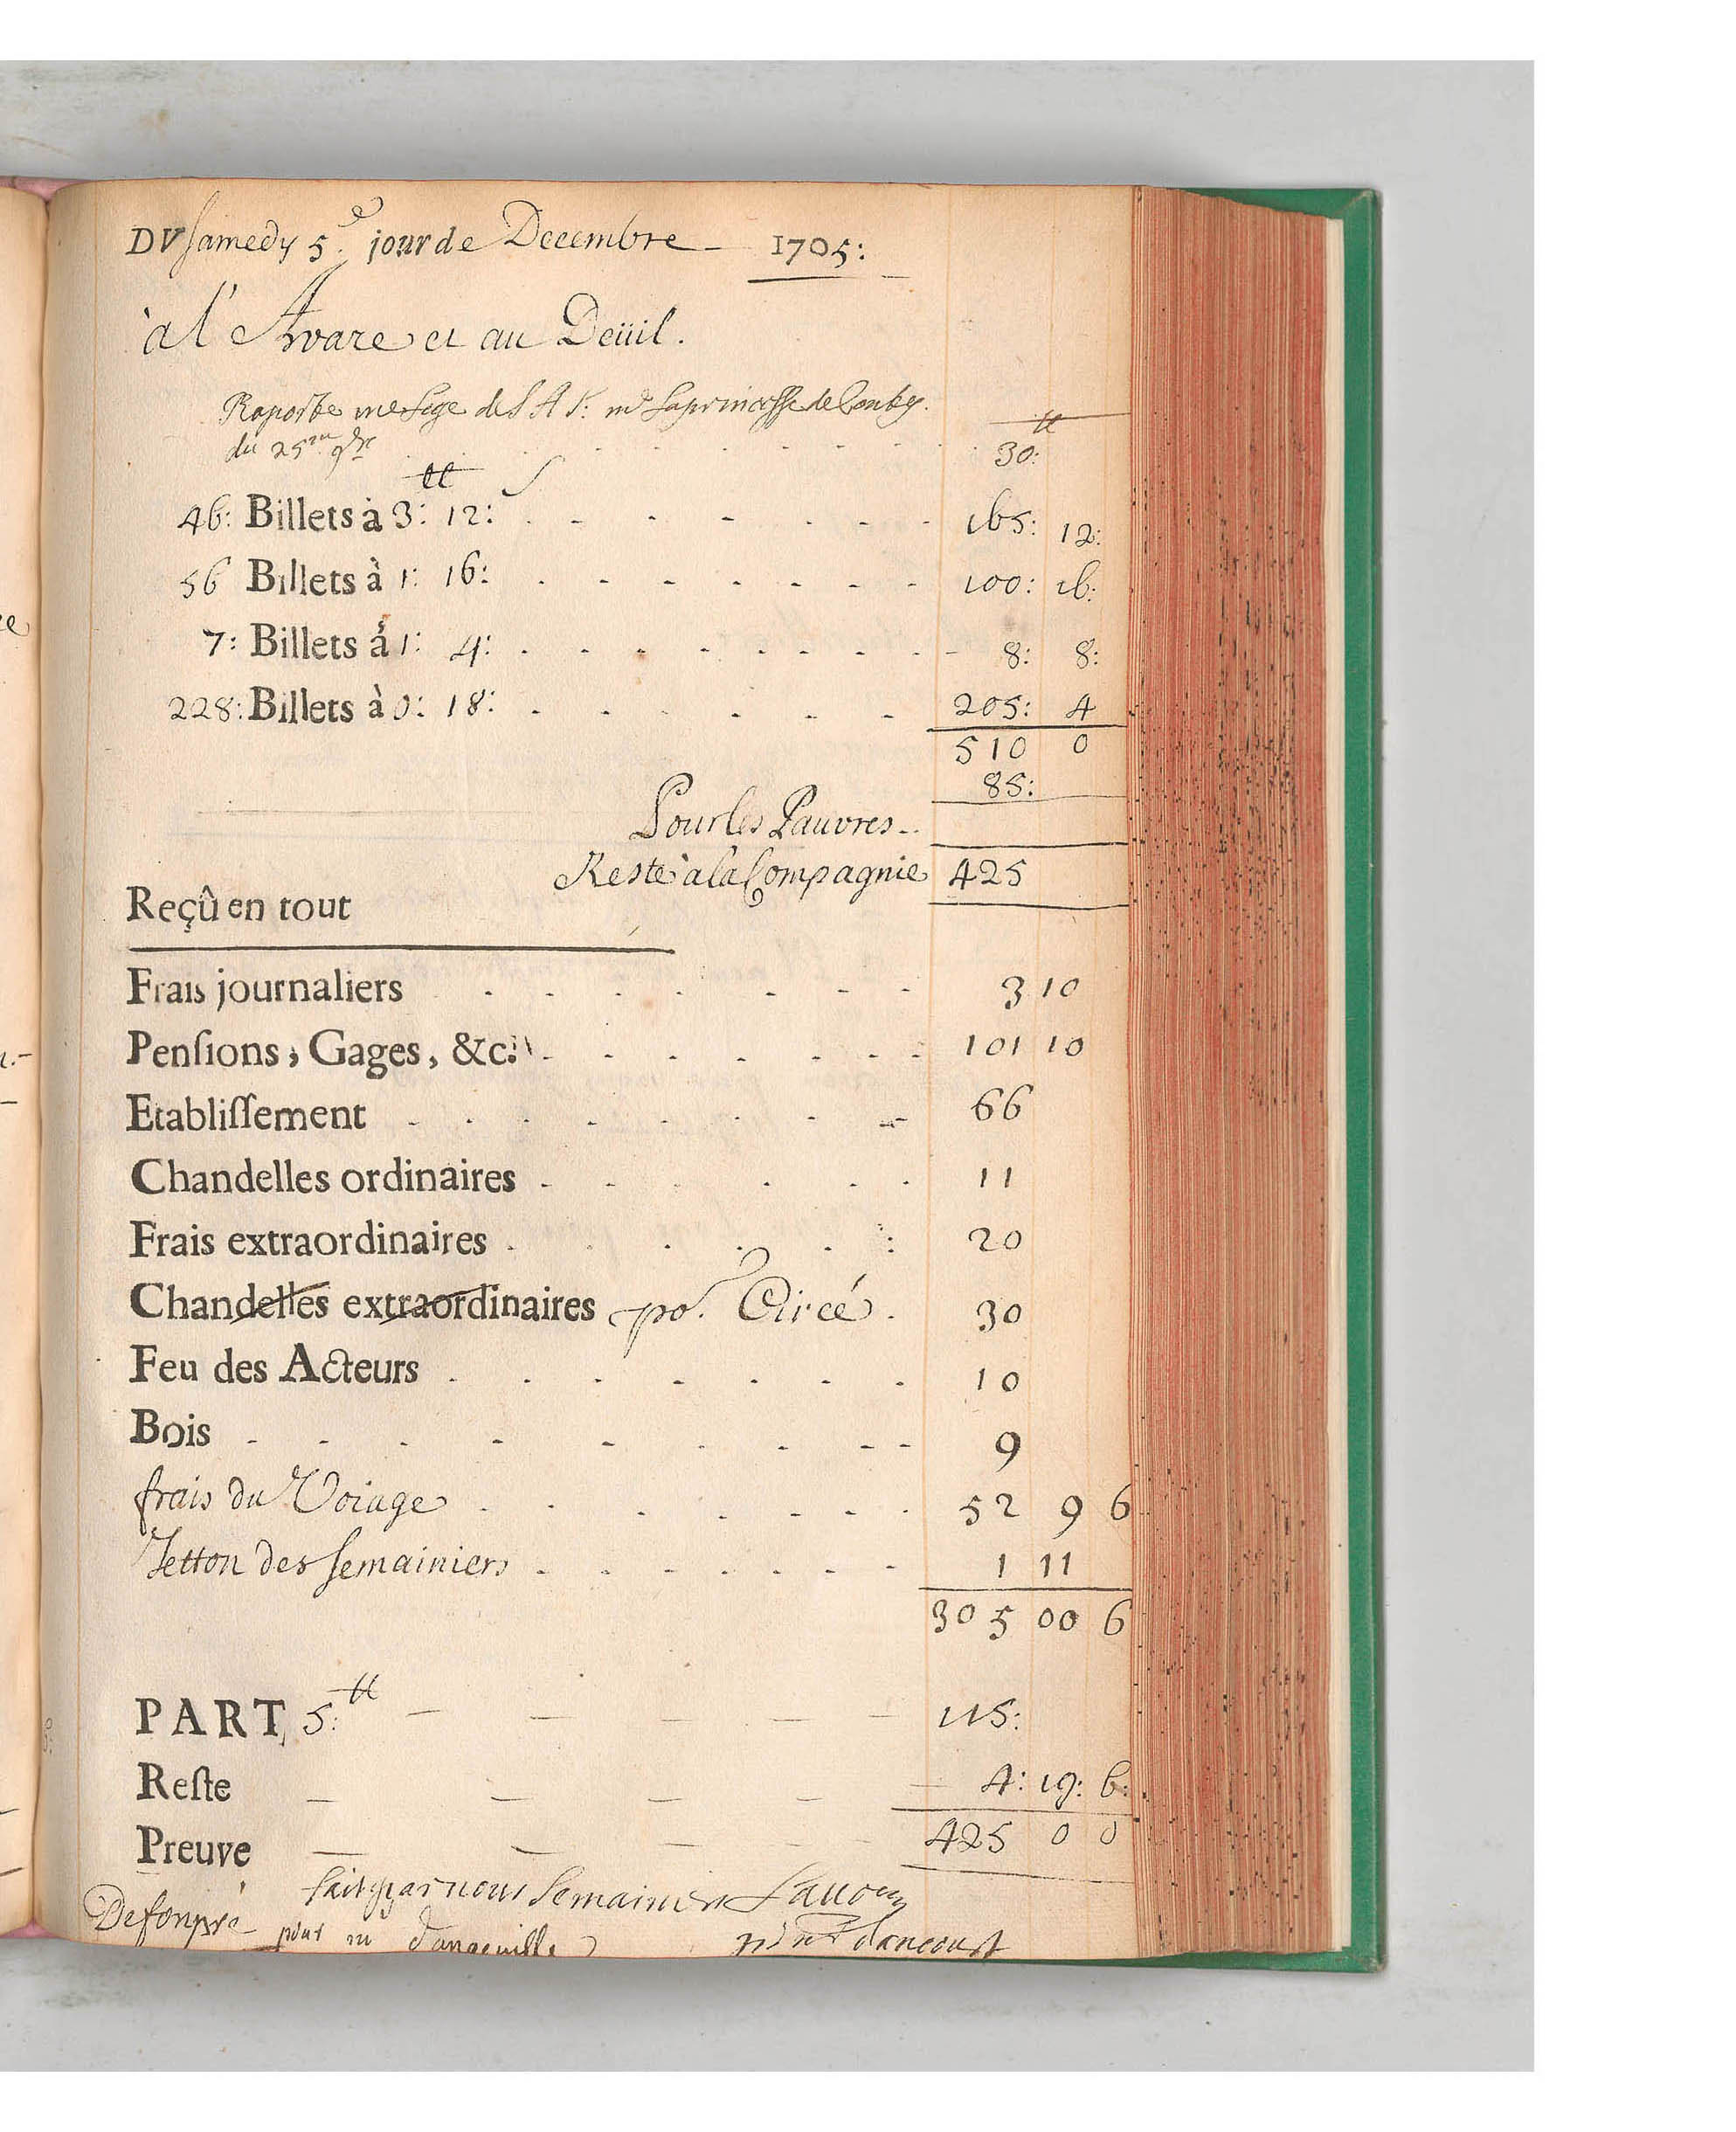 DV samedy 5.e jour de Decembre - 1705:
à l'Avare et au Deüil.
Raporté me Lege de S A S: md la princesse de Conty.
du 25me 9bre 30: ₶
46: Billets à 3:₶ 12: ſ 165: 12:
56 Billets à 1: 16: 100: 16:
7: Billets à 1: 4: 8: 8:
228: Billets à 0: 18: 205: 4
510 0
85:
Pour les Pauvres
Reste à la Compagnie 425
Reçû en tout
Frais journaliers 3 10
Penſions, Gages, &c. 101 10
Etabliſſement 66
Chandelles ordinaires 11
Frais extraordinaires 20
Chandelles extraordinaires po.r Circé. 30
Feu des Acteurs 10
Bois 9
frais du Voiage 52 9 6
Jetton des Semainiers 1 11
305 00 6
PART 5:₶ 115:
Reſte 4: 19: 6:
Preuve 425 0 0
fait par nous Semainiers
Defonpré pour m dangeuille dancourt